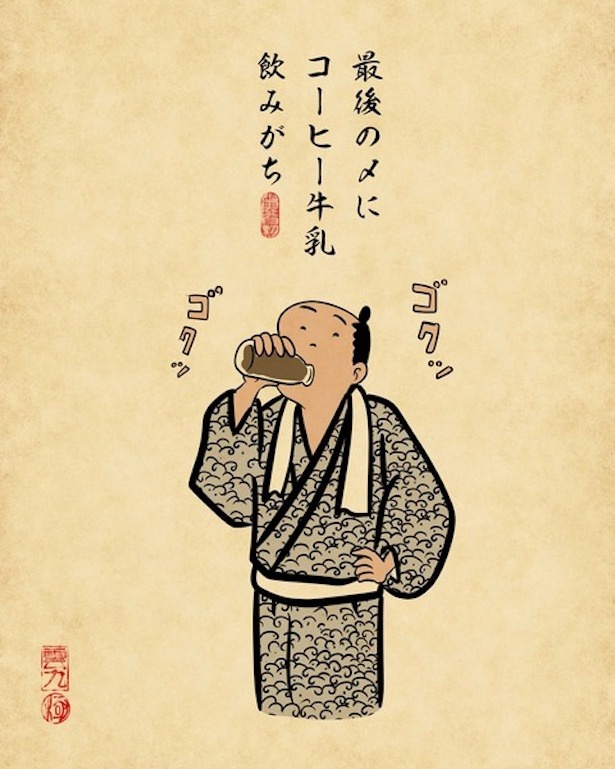 最後の〆に
コーヒー牛乳
飲みがち
ゴクッ
ゴクッ